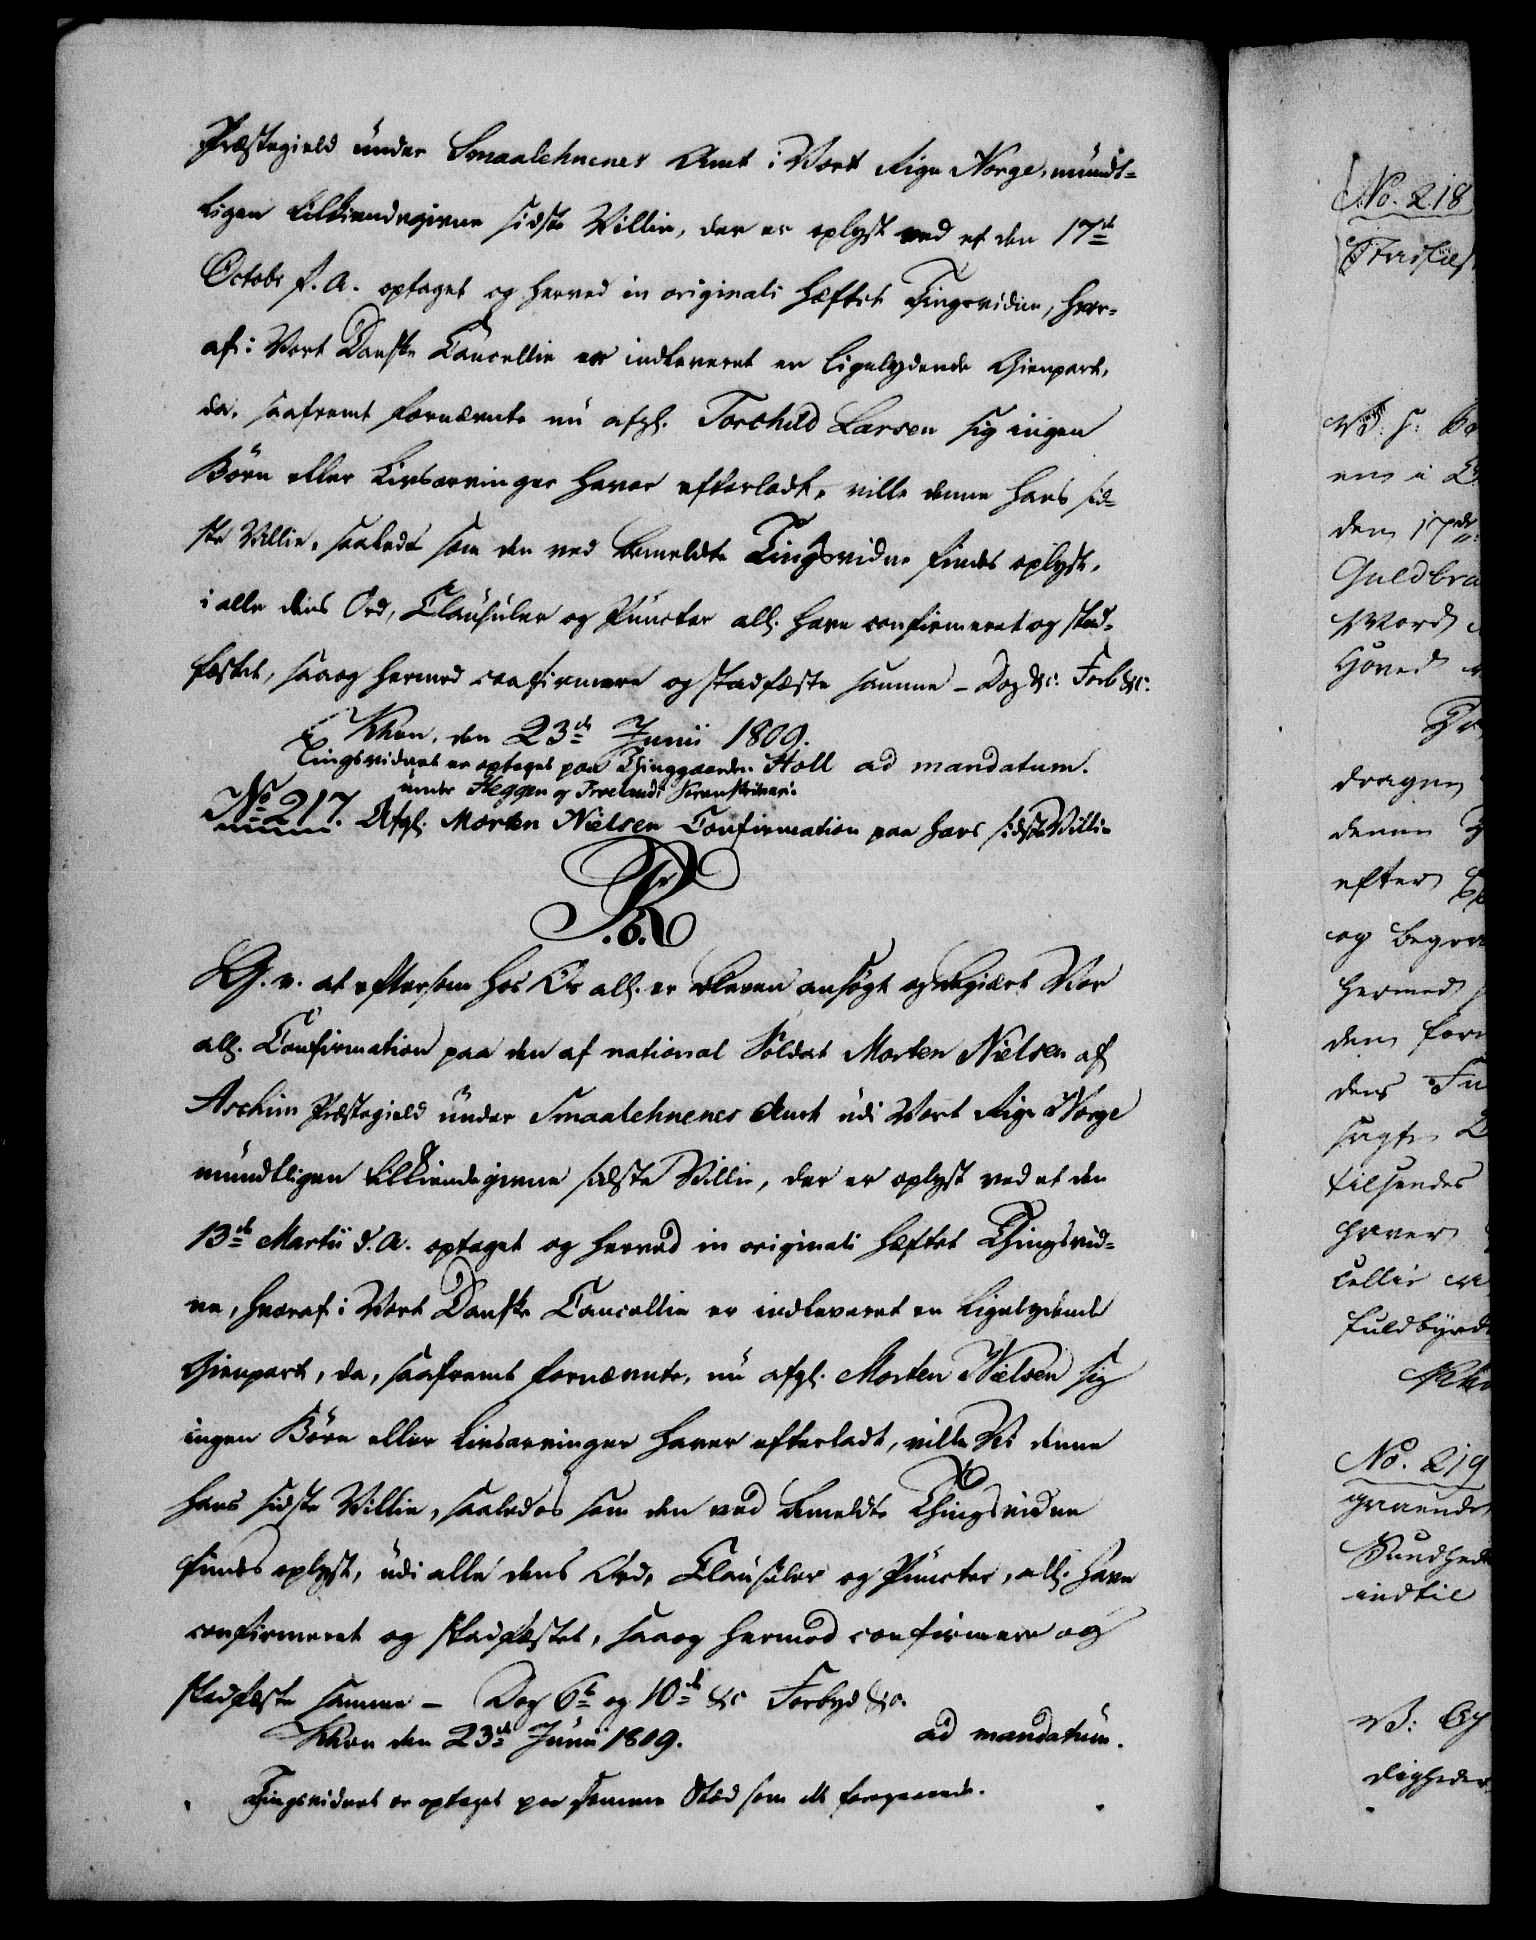 Præstegield under Smaalehnenes Amt i Vort Rige Norge, mundt-
ligen tilkiendegivne sidste Villie, der er oplyst ved et den 17de
Octobr f. A. optaget og herved in originali hæftet Tingsvidne, hvor-
af i Vort Danske Cancellie er indleveret en ligelydende Gienpart,
da, saafremt fornævnte nu afgl. Torchild Larsen sig ingen
Børn eller Livsarvinger haver efterladt, ville denne hans sid-
ste Villie, saaledes som den ved bemeldte Tingsvidne findes oplyst,
i alle dens Ord, Clausuler og Puncter all. have confirmeret og stad-
fæstet, saa og hermed confirmere og stadfæste samme - Dog &c. Forb &c.
Khvn. den 23de Junii 1809.
Tingsvidnet er optaget paa Thinggaarden Holl ad mandatum.
under Heggen og Frølands Sorenskriveri.
No 217. Afgl. Morten Nielsen Confirmation paa hans sidste Villie
F. 6. R
G. v. at eftersom hos Os all. er bleven ansøgt og begiært Vor
all. Confirmation paa den af national Soldat Morten Nielsen af
Aschim Præstegield under Smaalehnenes Amt udi Vort Rige Norge
mundtligen tilkiendegivne sidste Villie, der er oplyst ved et den
13de Martii d. A. optaget og herved in originali hæftet Thingsvid-
ne, hvoraf i Vort Danske Cancellie er indleveret en ligelydende
Gienpart, da, saafremt fornævnte, nu afgl. Morten Nielsen sig
ingen Børn eller Livsarvinger haver efterladt, ville Vi denne
hans sidste Villie, saaledes som den ved bemeldte Thingsvidne
findes oplyst, udi alle dens Ord, Clausuler og Puncter, all. have
confirmeret og stadfæstet, saa og hermed confirmere og
stadfæste samme - Dog 6te og 10de &c Forbyd &c.
Khvn den 23de Junii 1809. ad mandatum.
Tingsvidnet er optaget paa samme Stæd som det foregaaende.
No. 218
den 17de
Guldbra
Hoved
dragen
denne
efter
og begræ
hermed
den forn
dens Fu
sagte
tilsendes
haver
cellie
fuldbyrd
Khv
No. 219
Sundhed
indtil